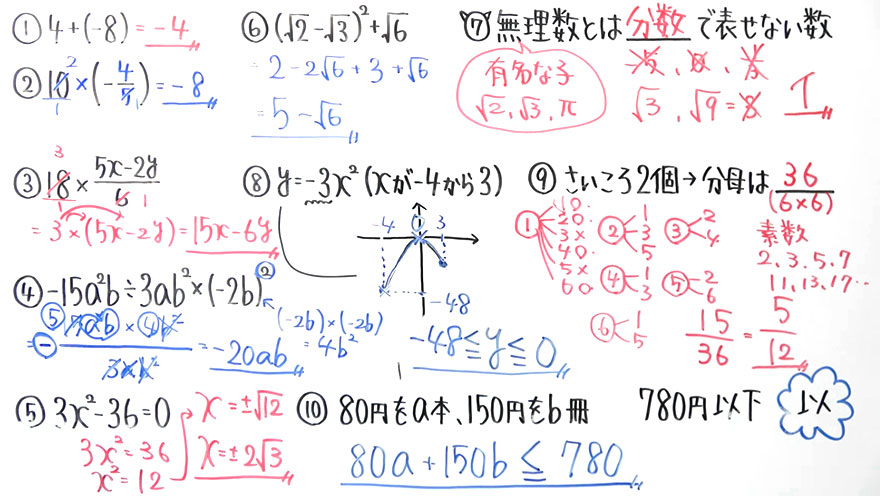 ① 4+(-8)=-4
② 10×(-4/5)=-8
2
1
1
③ 18×(5x-2y)/6
3
1
1
=3×(5x-2y)=15x-6y
④ -15a²b÷3ab²×(-2b)²
(-2b)×(-2b)
=4b²
=-20ab
⑤ 3x²-36=0
3x²=36
x²=12
x=±√12
x=±2√3
⑥ (√2-√3)²+√6
=2-2√6+3+√6
=5-√6
⑦ 無理数とは分数で表せない数
有名な子
√2、√3、π
√3、√9=3
エ
⑧ y=-3x²(xが-4から3)
-4 0 3
-48
-48≦y≦0
⑨ さいころ2個→分母は36
(6×6)
① 1○
2○
3×
4○
5×
6○
② 1
3
5
③ 2
4
④ 1
3
⑤ 2
6
⑥ 1
5
素数
2、3、5、7
11、13、17…
15/36=5/12
⑩ 80円をa本、150円をb冊 780円以下
以
80a+150b≦780